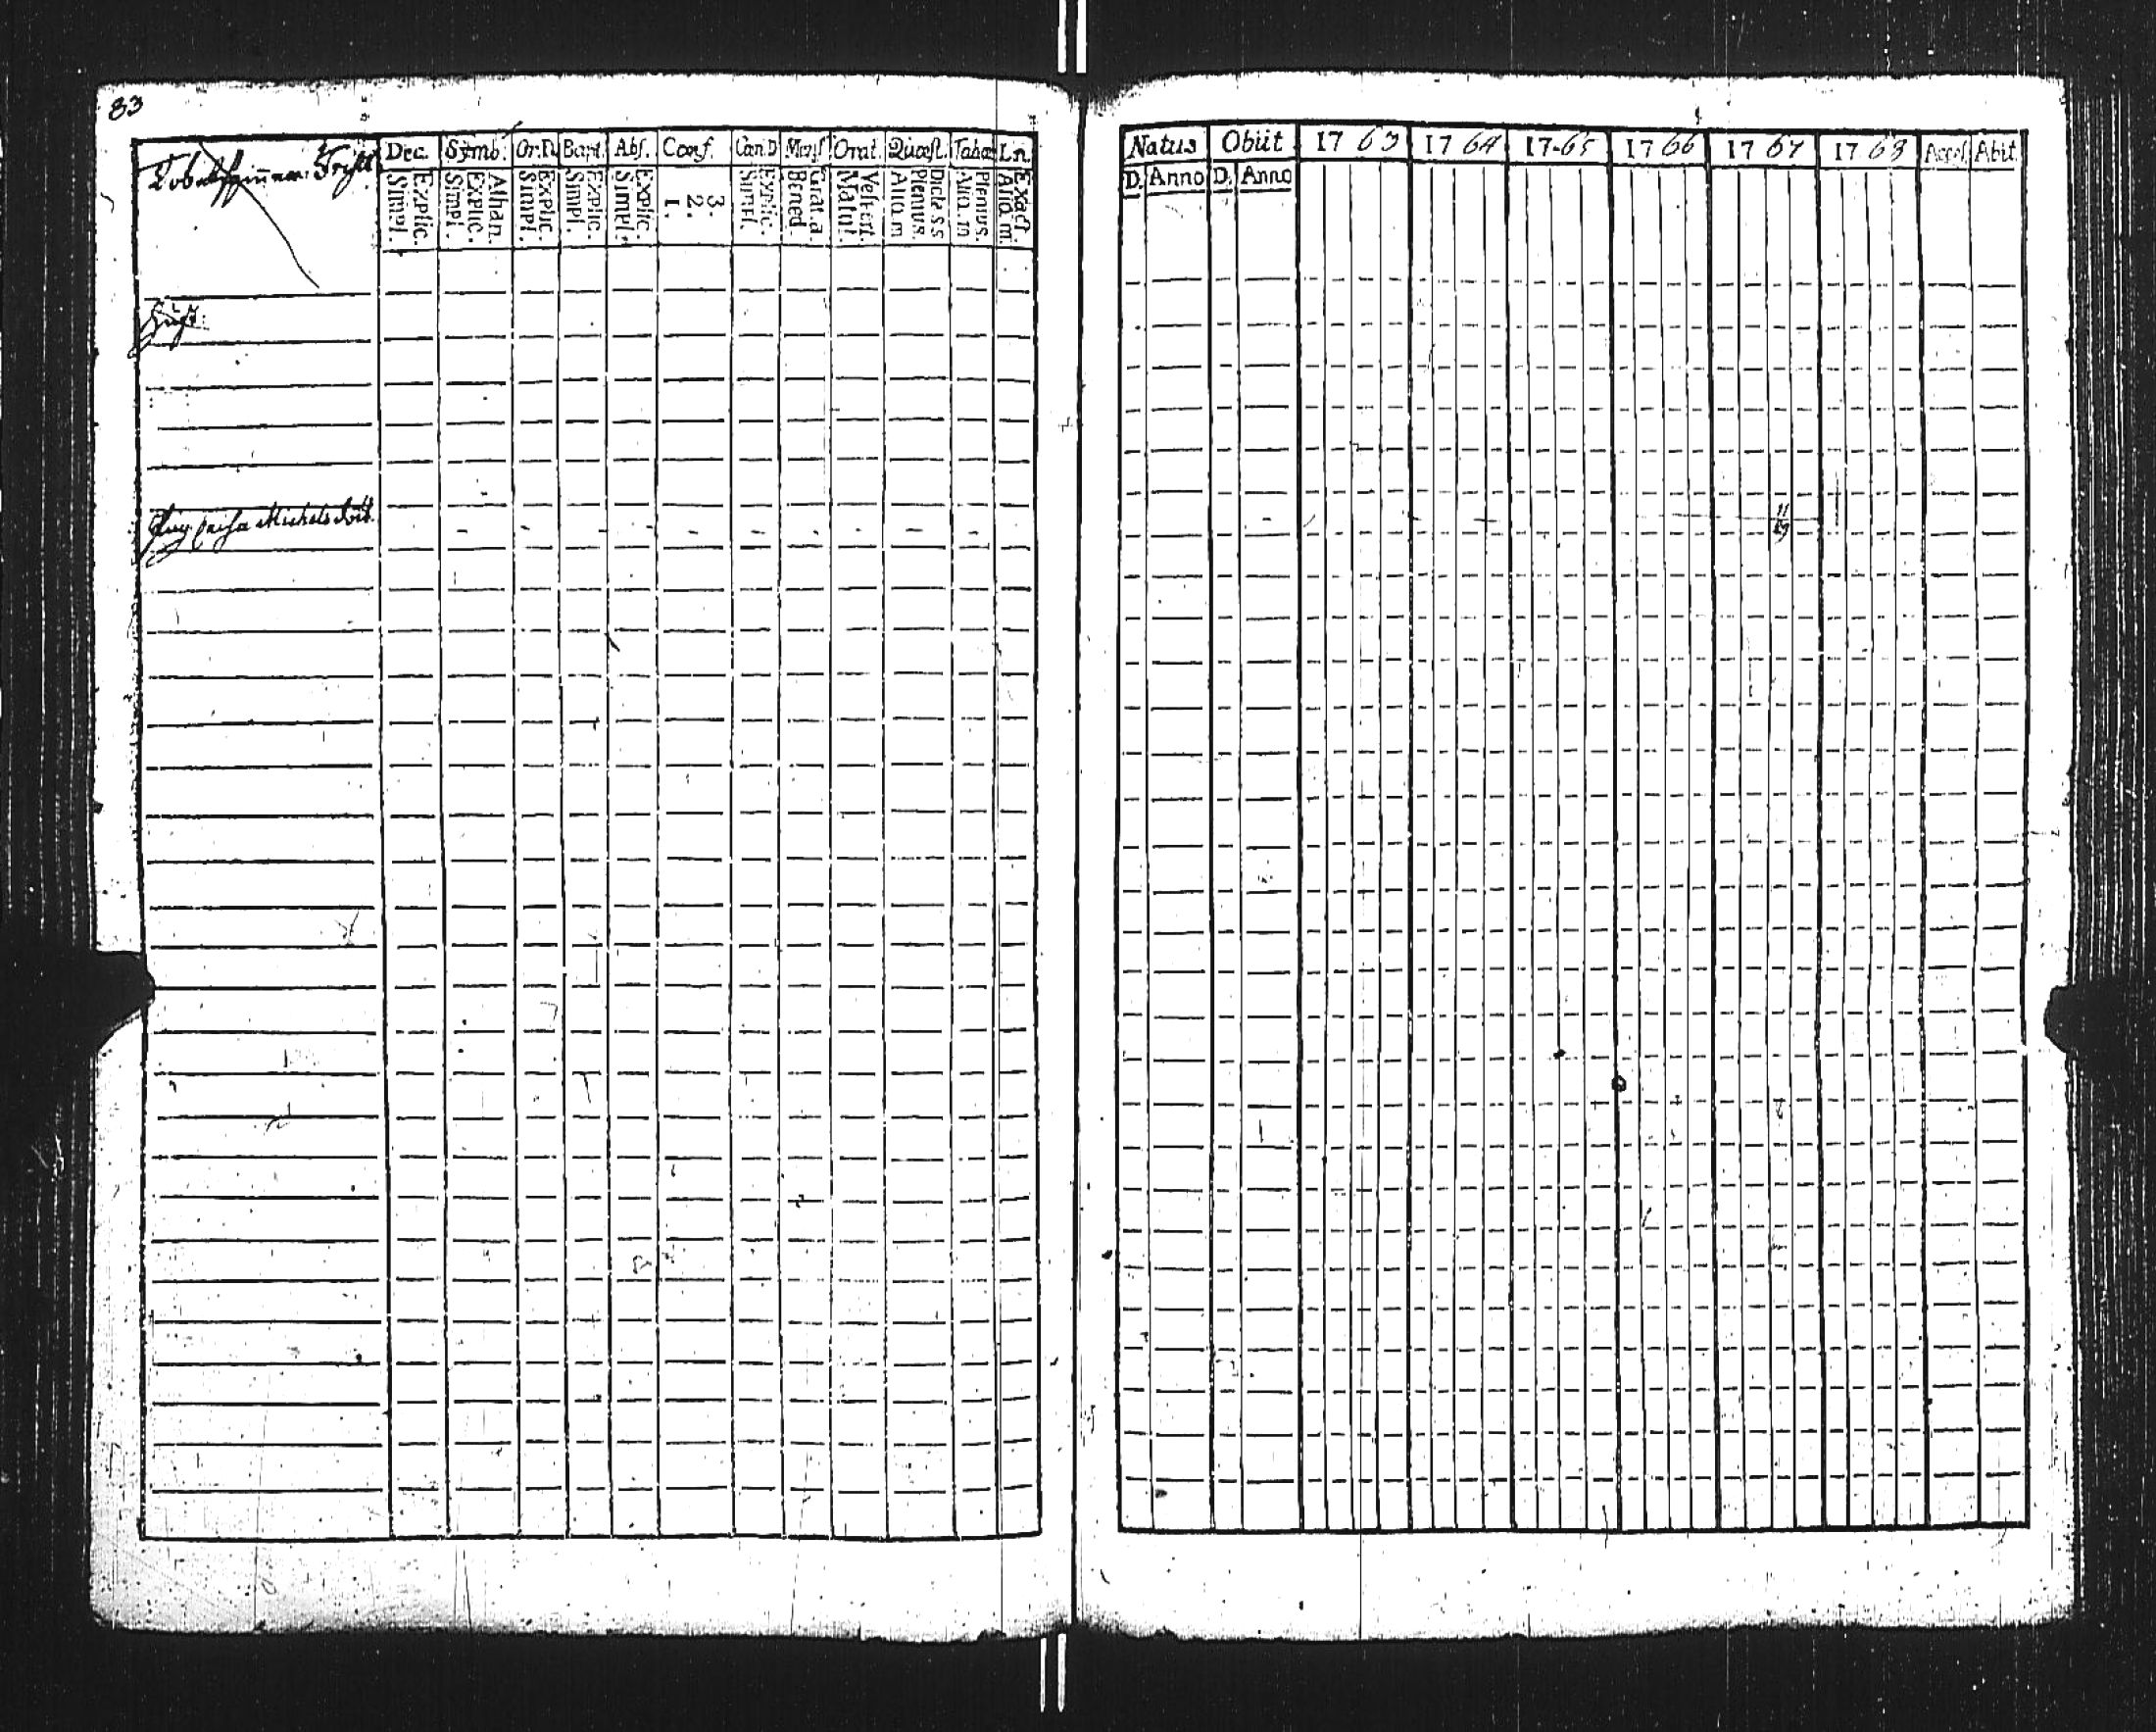 83
Dec. Symb. Or. D. Bapt. Abs. Conf. Can D Mens Orat. Quæst. Tabæ
Explic. Simpl.
Athan. Explic. Simpl.
Explic. Simpl.
Explic. Simpl.
Explic. Simpl.
3. 2. 1.
Explic. Simpl.
Grat. a Bened
Vespert. Matut.
Dicta s s Plenius. Aliq. m
Plenius. Aliq. m
Exact. Aliq. m.
Hust:
Michels
Natus Obiit 17 63 17 64 17 65 17 66 17 67 17 68 Abit.
D. Anno D. Anno
11